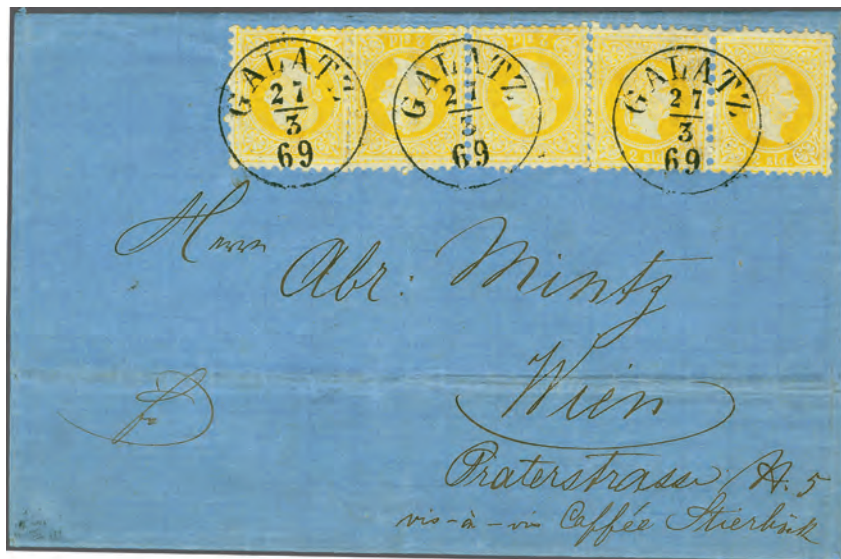 GALATZ
27
3
69
GALATZ
27
3
69
GALATZ
27
3
69
Herrn
Abr: Mintz
Wien
Praterstrasse N. 5
vis-à-vis Caffée Stierböck